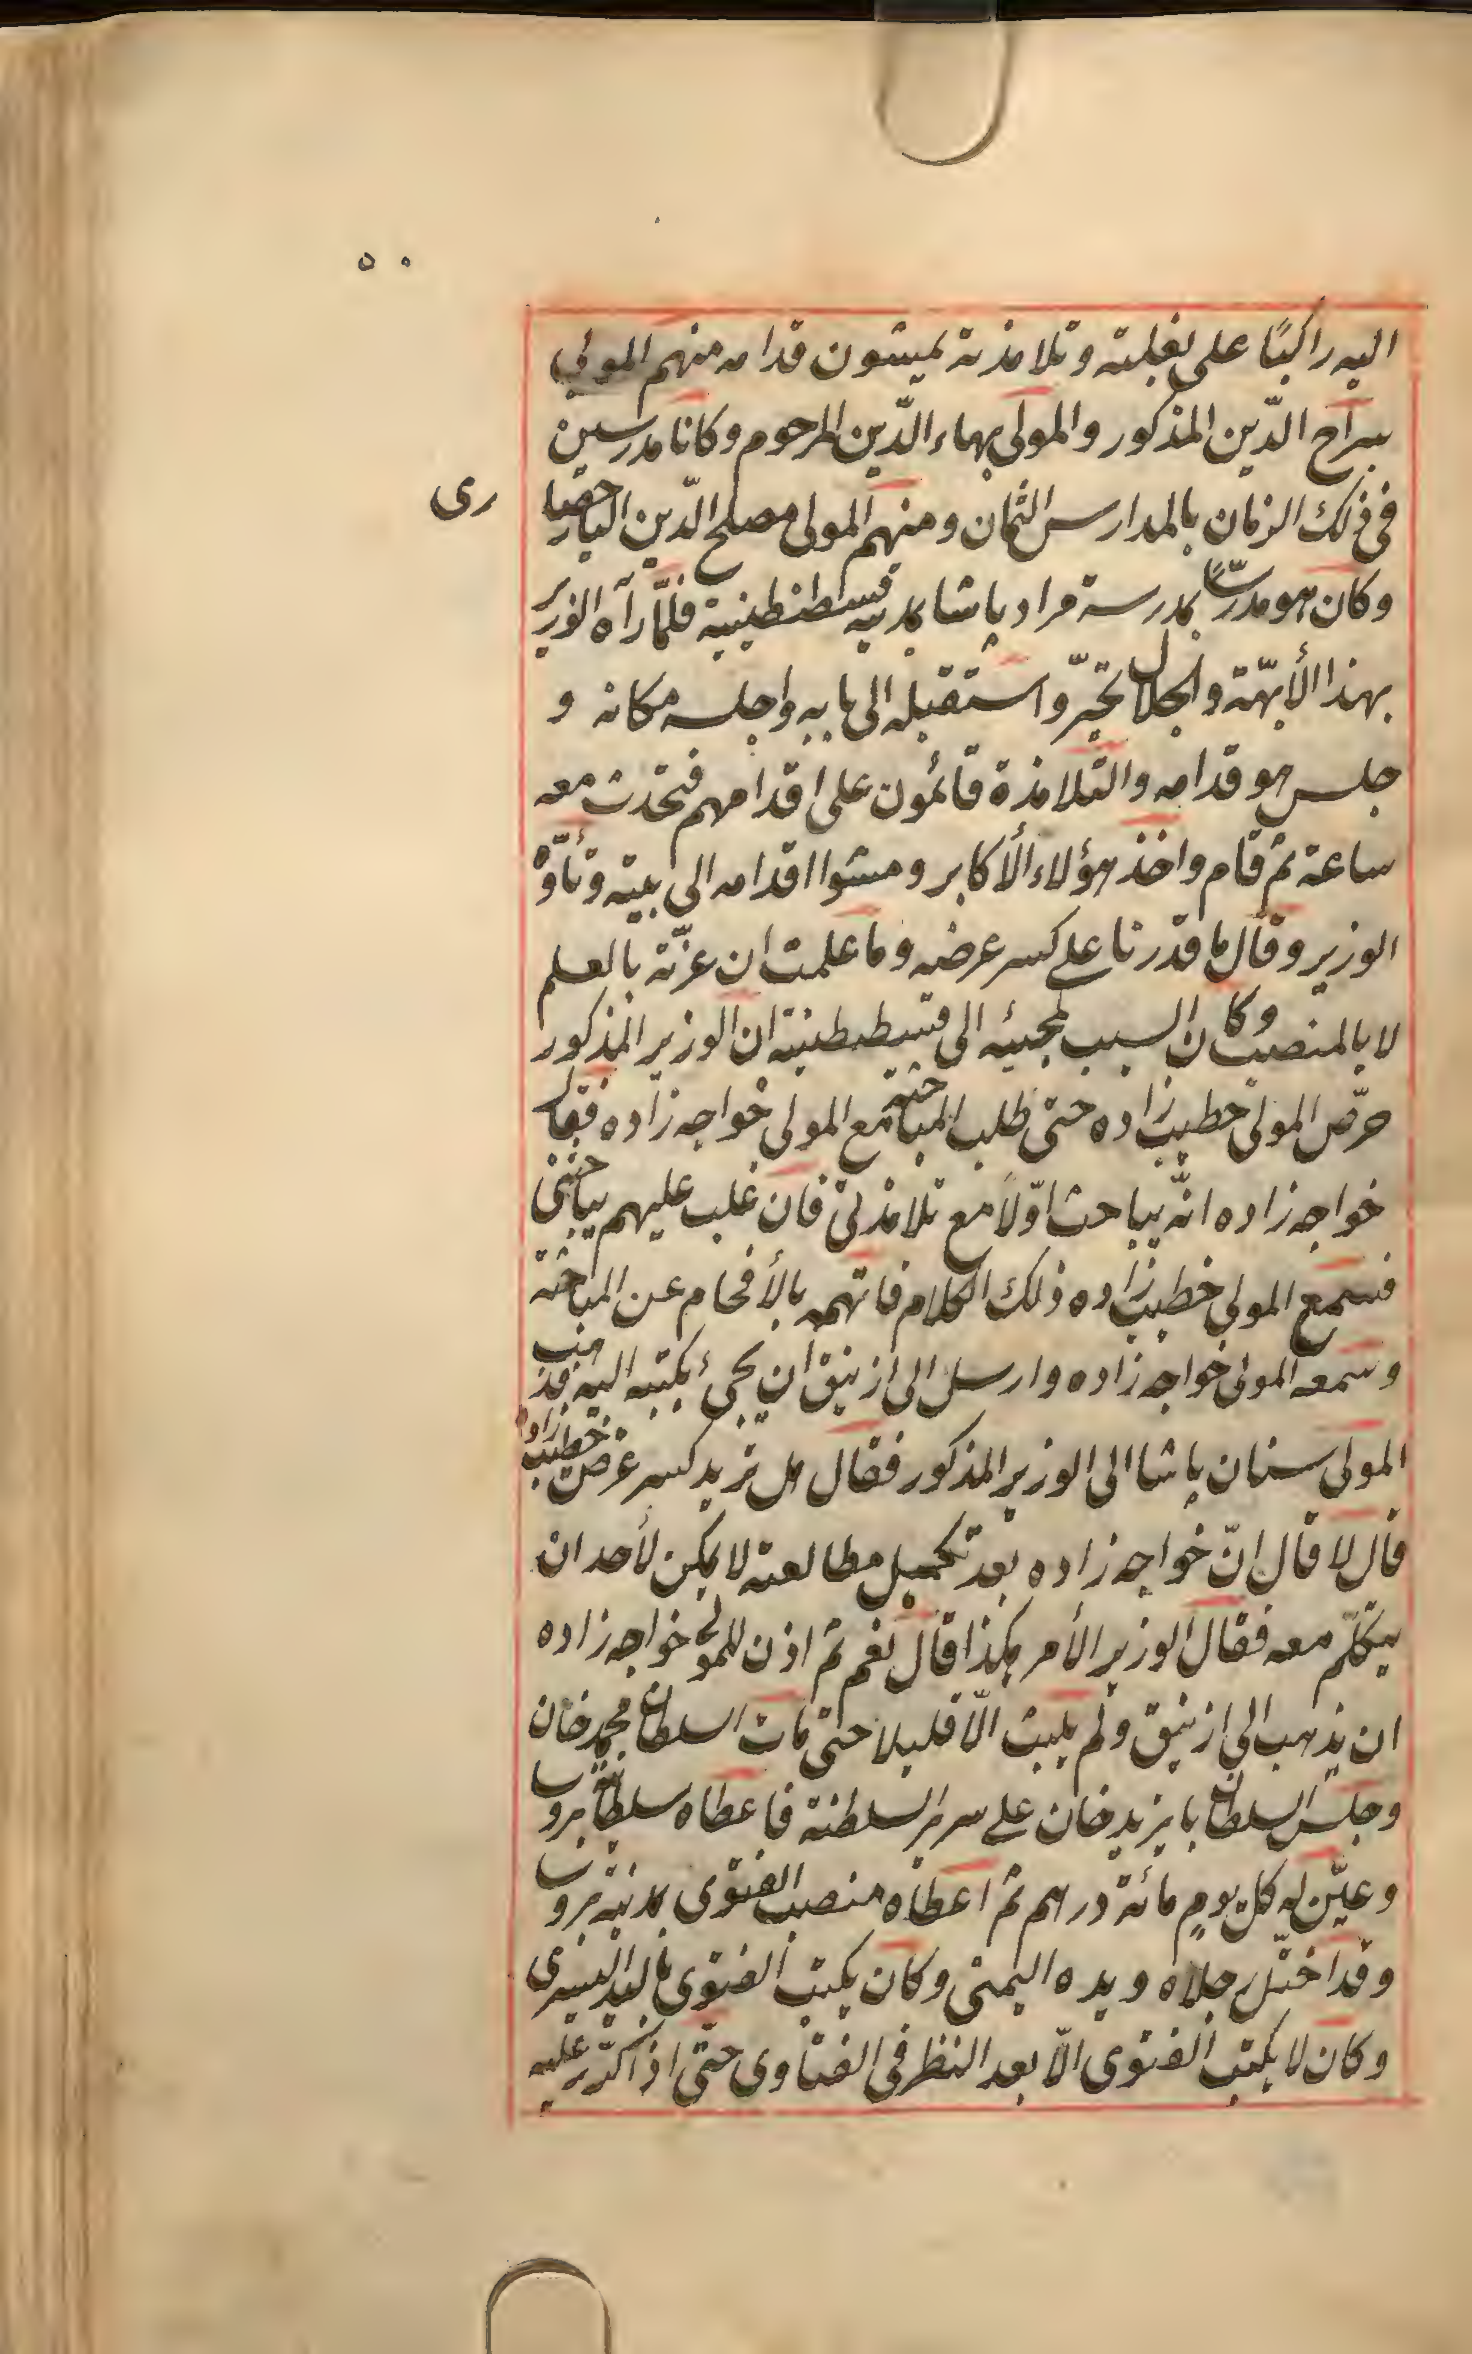 ٥٠
اليه راكبًا على بغلته وتلامذته يمشون قدامه منهم المولى
سراج الدّين المذكور والمولى بهاء الدّين المرحوم وكانا مدرسين
فى ذلك الزمان بالمدارس الثمان ومنهم المولى مصلح الدّين اليارحصا
رى
وكان هو مدرّسًا بمدرسة مراد پاشا بمدينه قسطنطينية فلمّا رآه الوزير
بهذا الأبهّة والجلال تحيّر واستقبله الى بابه واجلسه مكانه و
جلس هو قدامه والتلامذة قائمون على اقدامهم فتحدث معه
ساعة ثم قام واخذ هؤلاء الأكابر ومشوا اقدامه الى بيته وتأوّه
الوزير وقال ما قدرنا على كسر عرضه وما علمت ان عزّته بالعلم
لا بالمنصب وكان السبب لمجيئه الى قسطنطينية ان الوزير المذكور
حرّض المولى خطيب زاده حتى طلب المباحثة مع المولى خواجه زاده فقال
خواجه زاده انّه يباحث اوّلاً مع تلامذتى فان غلب عليهم يباحثنى
فسمع المولى خطيب زاده ذلك الكلام فاتهمه بالأفحام عن المباحثة
وسمعه المولى خواجه زاده وارسل الى ازنيق ان يجئ بكتبه اليه فذهب
المولى سنان پاشا الى الوزير المذكور فقال هل تريد كسر عرض خطيب زاده
قال لا قال انّ خواجه زاده بعد تكميل مطالعته لا يمكن لأحد ان
يتكلّم معه فقال الوزير الأمر هكذا قال نعم ثم اذن للمولى خواجه زاده
ان يذهب الى ازنيق ولم يلبث الّا قليلا حتى مات السلطان محمد خان
وجلس السلطان بايزيد خان على سرير السلطنة فاعطاه سلطانية بروسا
وعيّن له كل يوم مائة درهم ثم اعطاه منصب الفتوى بمدينة بروسا
وقد اختلّ رجلاه ويده اليمنى وكان يكتب الفتوى باليد اليسرى
وكان لا يكتب الفتوى الّا بعد النظر فى الفتاوى حتّى اذا تكرّر عليه